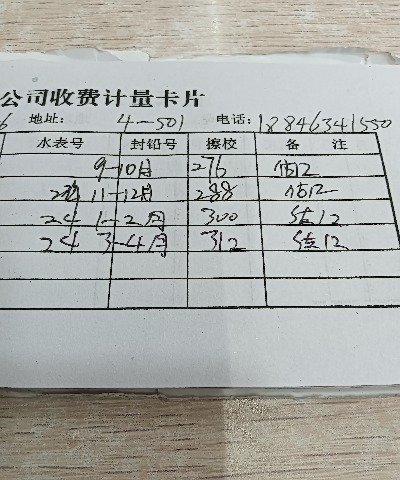 公司收费计量卡片
6 地址: 4-501 电话: 18846341550
水表号 封铅号 擦校 备 注
9-10月 276 估12
11-12月 288 估12
24 1-2月 300 估12
24 3-4月 312 估12